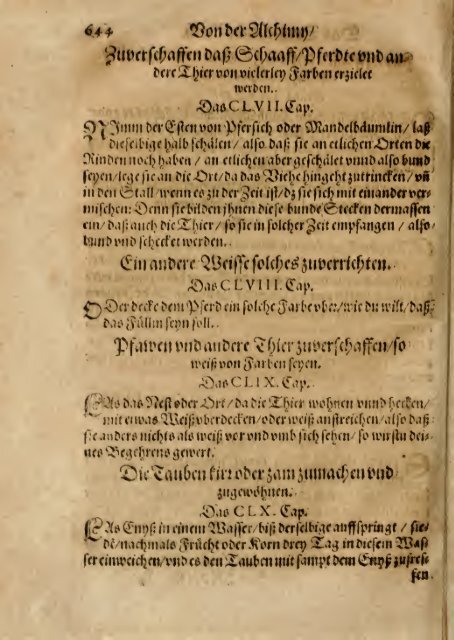 644 Von der Alchimy/
Zuverschaffen daß Schaaff/Pferdte vnd an-
dere Thier von vielerley Farben erzielet
werden.
Das CLVII. Cap.
NImm der Esten von Pfersich oder Mandelbäumlin/ laß
dieselbige halb schälen/ also daß sie an etlichen Orten die
Rinden noch haben/ an etlichen aber geschälet vnnd also bund
seyen/lege sie an die Ort/da das Viehe hingeht zutrincken/ vñ
in den Stall/wenn es zu der Zeit ist/dz sie sich mit einander ver-
mischen: Denn sie bilden jhnen diese bunde Stecken dermassen
ein/daß auch die Thier/ so sie in solcher Zeit empfangen/ also
bund vnd schecket werden.
Ein andere Weisse solches zuverrichten.
Das CLVIII. Cap.
ODer decke dem Pferd ein solche Farbe vber/wie du wilt/daß
das Füllin seyn soll.
Pfawen vnd andere Thier zuverschaffen/so
weiß von Farben seyen.
Das CLIX. Cap.
LAs das Nest oder Ort/da die Thier wohnen vnnd hecken/
mit etwas Weiß vberdecken/oder weiß anstreichen/also daß
sie anders nichts als weiß vor vnd vmb sich sehen/ so wirstu dei-
nes Begehrens gewert.
Die Tauben kirr oder zam zumachen vnd
zugewöhnen.
Das CLX. Cap.
LAs Enyß in einem Wasser/ biß derselbige auffspringt/ sie-
dẽ/nachmals Frücht oder Korn drey Tag in diesem Was-
ser einweichen/vnd es den Tauben mit sampt dem Enyß zufres-
sen